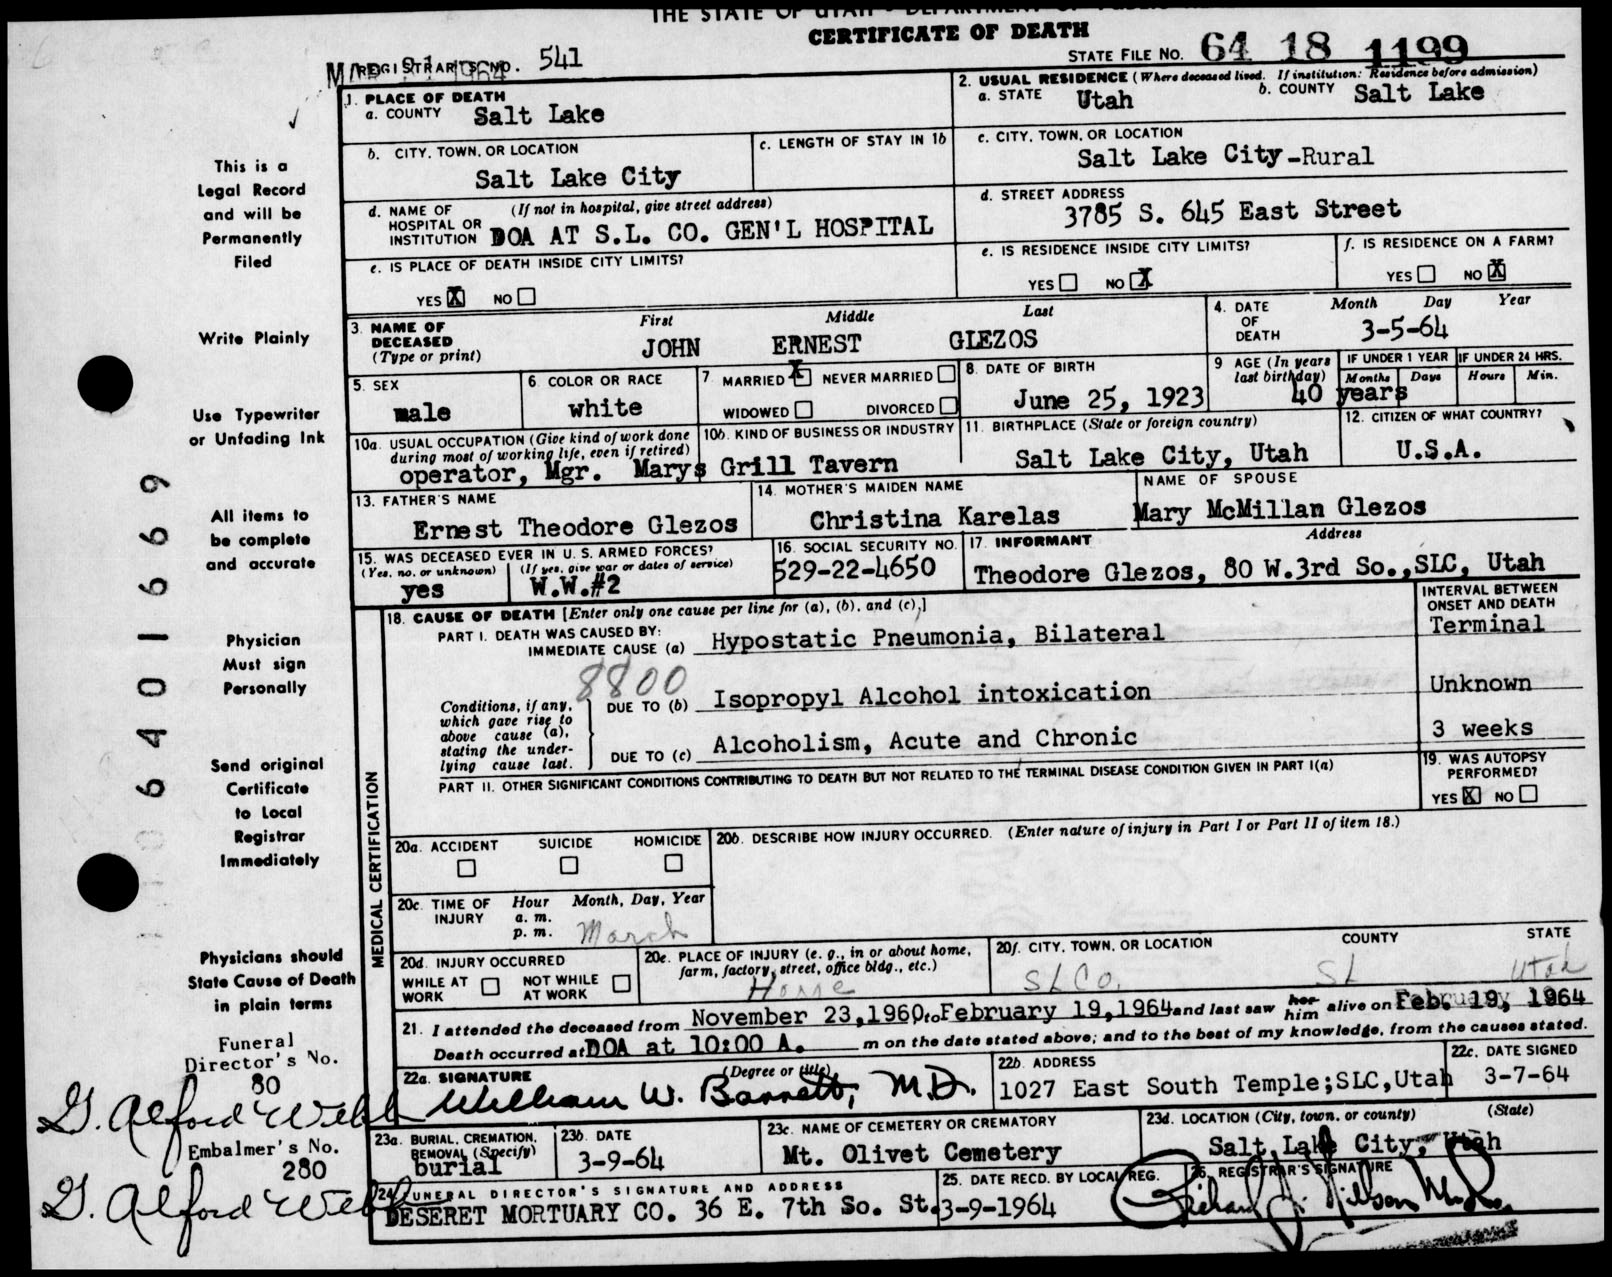 THE STATE OF UTAH - DEPARTMENT OF PUBLIC
CERTIFICATE OF DEATH
STATE FILE NO. 64 18 1199
REGISTRAR'S NO. 541
1964
1. PLACE OF DEATH
a. COUNTY Salt Lake
2. USUAL RESIDENCE (Where deceased lived. If institution: Residence before admission)
a. STATE Utah b. COUNTY Salt Lake
b. CITY, TOWN, OR LOCATION
Salt Lake City
c. LENGTH OF STAY IN 1b
c. CITY, TOWN, OR LOCATION
Salt Lake City-Rural
d. NAME OF HOSPITAL OR INSTITUTION (If not in hospital, give street address)
DOA AT S.L. CO. GEN'L HOSPITAL
d. STREET ADDRESS
3785 S. 645 East Street
e. IS PLACE OF DEATH INSIDE CITY LIMITS?
YES X NO
e. IS RESIDENCE INSIDE CITY LIMITS?
YES NO X
f. IS RESIDENCE ON A FARM?
YES NO X
3. NAME OF DECEASED (Type or print)
First Middle Last
JOHN ERNEST GLEZOS
4. DATE OF DEATH Month Day Year
3-5-64
5. SEX
male
6. COLOR OR RACE
white
7. MARRIED X NEVER MARRIED
WIDOWED DIVORCED
8. DATE OF BIRTH
June 25, 1923
9 AGE (In years last birthday)
40 years
IF UNDER 1 YEAR IF UNDER 24 HRS.
Months Days Hours Min.
10a. USUAL OCCUPATION (Give kind of work done during most of working life, even if retired)
operator, Mgr.
10b. KIND OF BUSINESS OR INDUSTRY
Marys Grill Tavern
11. BIRTHPLACE (State or foreign country)
Salt Lake City, Utah
12. CITIZEN OF WHAT COUNTRY?
U.S.A.
13. FATHER'S NAME
Ernest Theodore Glezos
14. MOTHER'S MAIDEN NAME
Christina Karelas
NAME OF SPOUSE
Mary McMillan Glezos
15. WAS DECEASED EVER IN U. S. ARMED FORCES?
(Yes, no, or unknown) (If yes, give war or dates of service)
yes W.W.#2
16. SOCIAL SECURITY NO.
529-22-4650
17. INFORMANT Address
Theodore Glezos, 80 W.3rd So.,SLC, Utah
MEDICAL CERTIFICATION
18. CAUSE OF DEATH [Enter only one cause per line for (a), (b), and (c).]
INTERVAL BETWEEN ONSET AND DEATH
PART I. DEATH WAS CAUSED BY:
IMMEDIATE CAUSE (a) Hypostatic Pneumonia, Bilateral Terminal
8800
Conditions, if any, which gave rise to above cause (a), stating the underlying cause last.
DUE TO (b) Isopropyl Alcohol intoxication Unknown
DUE TO (c) Alcoholism, Acute and Chronic 3 weeks
PART II. OTHER SIGNIFICANT CONDITIONS CONTRIBUTING TO DEATH BUT NOT RELATED TO THE TERMINAL DISEASE CONDITION GIVEN IN PART I(a)
19. WAS AUTOPSY PERFORMED?
YES X NO
20a. ACCIDENT SUICIDE HOMICIDE
20b. DESCRIBE HOW INJURY OCCURRED. (Enter nature of injury in Part I or Part II of item 18.)
20c. TIME OF INJURY Hour Month, Day, Year
a. m.
p. m. March
20d. INJURY OCCURRED
WHILE AT WORK NOT WHILE AT WORK
20e. PLACE OF INJURY (e. g., in or about home, farm, factory, street, office bldg., etc.)
Home
20f. CITY, TOWN, OR LOCATION COUNTY STATE
SL Co. SL Utah
21. I attended the deceased from November 23,1960,to February 19,1964 and last saw her him alive on Feb. 19, 1964
Death occurred at DOA at 10:00 A. m on the date stated above; and to the best of my knowledge, from the causes stated.
22a. SIGNATURE (Degree or title)
William W. Barrett, M.D.
22b. ADDRESS
1027 East South Temple;SLC,Utah
22c. DATE SIGNED
3-7-64
23a. BURIAL, CREMATION, REMOVAL (Specify)
burial
23b. DATE
3-9-64
23c. NAME OF CEMETERY OR CREMATORY
Mt. Olivet Cemetery
23d. LOCATION (City, town, or county) (State)
Salt Lake City, Utah
24. FUNERAL DIRECTOR'S SIGNATURE AND ADDRESS
DESERET MORTUARY CO. 36 E. 7th So. St.
25. DATE RECD. BY LOCAL REG.
3-9-1964
26. REGISTRAR'S SIGNATURE
This is a
Legal Record
and will be
Permanently
Filed
Write Plainly
Use Typewriter
or Unfading Ink
All items to
be complete
and accurate
Physician
Must sign
Personally
Send original
Certificate
to Local
Registrar
Immediately
Physicians should
State Cause of Death
in plain terms
Funeral
Director's No.
80
G. Alford Webb
Embalmer's No.
280
G. Alford Webb
64016669